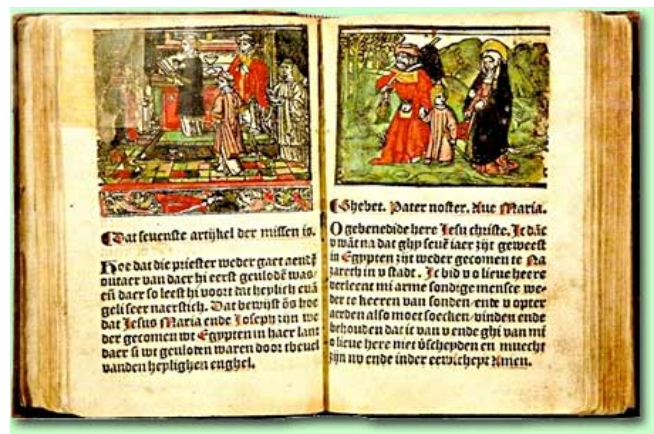 ¶Dat seuenste artijkel der missen is.
Hoe dat die priester weder gaet aendē
outaer van daer hi eerst geulodē was/
eñ daer so leest hi voort dat heylich euā
geli seer naerstich. Dat bewijst ōs hoe
dat Jesus Maria ende Joseph zijn we
der gecomen wt Egypten in haer lant
daer si wt geuloten waren door tbeuel
vanden heylighen enghel.
¶Ghebet. Pater noster. Aue Maria.
O gebenedide here Jesu christe. Jc dāc
v wāt na dat ghy seuē iaer zijt geweest
in Egypten zijt weder gecomen te Na
zareth in v stadt. Jc bid v o lieue heere
verleent mi arme sondige mensce we-
der te keeren van sonden/ente v opter
aerden also moet soecken/vinden ende
behouden dat ic van v ende ghi van mi
o lieue here niet v̄scheyden en muecht
zijn nv ende inder eewichept Amen.